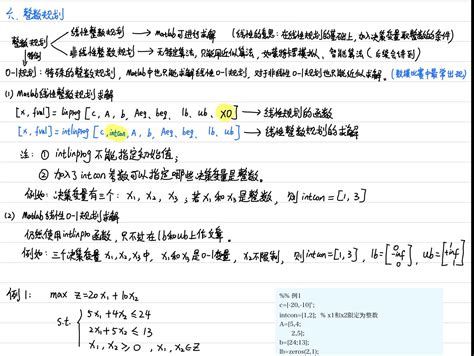 六、整数规划
整数规划
特例
线性整数规划 → Matlab可进行求解 (线性的意思: 在线性规划的基础上, 加入决策变量取整数的条件)
非线性整数规划 → 无特定算法, 只能用近似算法, 如蒙特卡罗模拟、智能算法 (后续会讲到)
0-1规划: 特殊的整数规划, Matlab中也只能求解线性0-1规划, 对于非线性0-1规划也只能近似求解. (数模比赛中最常出现)
(1) Matlab整数规划求解
[x, fval] = linprog [c, A, b, Aeq, beq, lb, ub, X0] → 线性规划的函数
[x, fval] = intlinprog [c, intcon, A, b, Aeq, beq, lb, ub] → 线性整数规划的求解
注: ① intlinprog 不能指定初始值;
② 加入了 intcon 参数可以指定哪些决策变量是整数.
例如: 决策变量有三个: x1, x2, x3; 若 x1 和 x3 是整数, 则 intcon = [1, 3]
(2) Matlab 线性0-1规划求解
仍然使用 intlinpro 函数, 只不过在 lb 和 ub 上作文章.
例如: 三个决策变量 x1, x2, x3 中, x1 和 x3 是 0-1变量, x2 不限制, 则 intcon = [1, 3], lb = [0 -inf 0], ub = [1 +inf 1]
例1: max z = 20x1 + 10x2
s.t. { 5x1 + 4x2 ≤ 24
2x1 + 5x2 ≤ 13
x1, x2 ≥ 0, x1, x2 ∈ Z
%% 例1
c=[-20,-10]';
intcon=[1,2]; % x1和x2限定为整数
A=[5,4;
2,5];
b=[24;13];
lb=zeros(2,1);